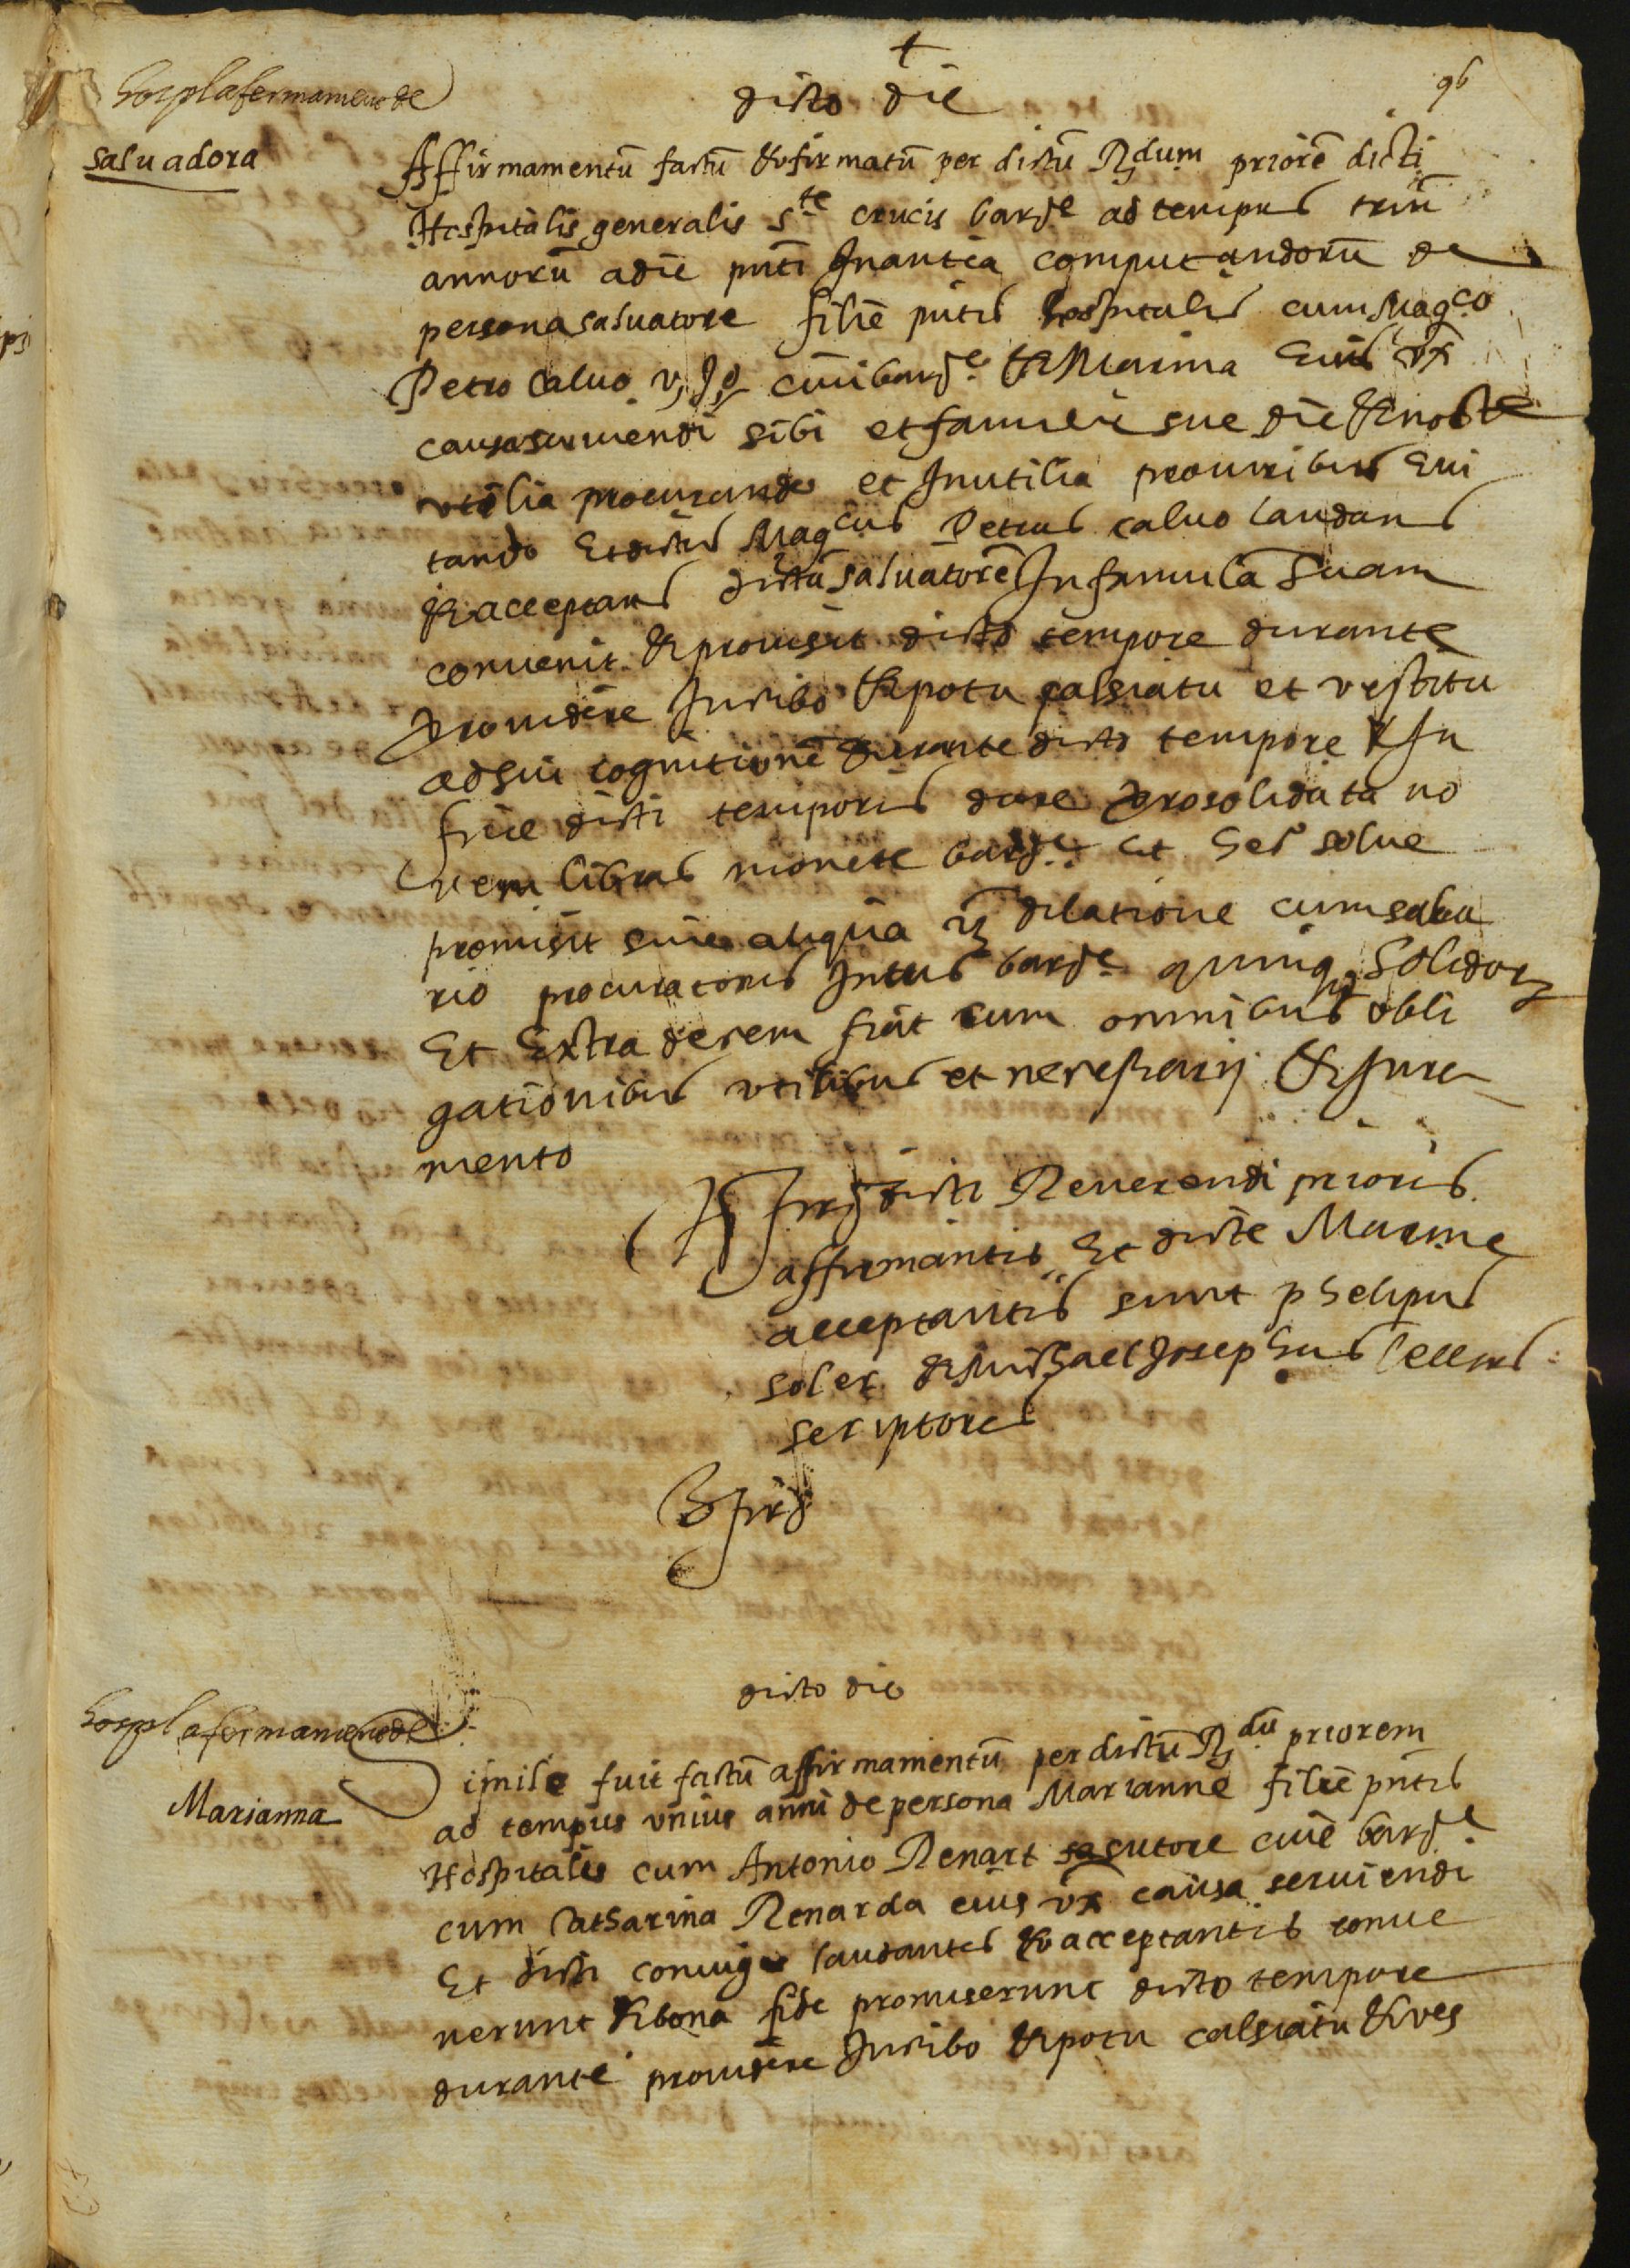 +
96
dicto die
hospl afermament de
Saluadora
Affirmamentū factū & firmatū per dictū Rdum priorē dicti
Hospitalis generalis Ste crucis barne ad tempus triū
annorū a die pñti Inantea computandorū de
persona saluatore filie pñtis hospitalis cum Magco
Petro caluo v, J, d, ciui barne & Marina Eius vx
causa seruiendi sibi et familie sue die & nocte
vtilia procurando et Inutilia pro uiribus Eui
tando Et dictus Magcus Petrus caluo laudans
& acceptans dictā saluatorē In famula Suam
conuenit & promisit dicto tempore durante
prouidere In cibo & potu calsiatu et vestitu
ad sui cognitionē durante dicto tempore & In
fine dicti temporis dare pro solidata no
uem libras monete barne Et hec solue
promisit sine aliqua dilatione cum sala
rio procuratoris Intus barne quinq Solidor
Et Extra decem fiat cum omnibus obli
gationibus vtilibus et necessarijs & Jura
mento
Ts firē dicti Reuerendi prioris
affirmantis Et dicte Marine
acceptantis sunt phelipus
soler & Michael Josephus sellers
scriptores
dicto die
hospl afermament de
Marianna
Simile fuit factū affirmamentū per dictū Rdū priorem
ad tempus vnius anni de persona Marianne filie pñtis
Hospitalis cum Antonio Renart sa sutore ciue barne
cum Catharina Renarda eius vx causa seruiendi
Et dicti coniuges laudantes & acceptantes conue
nerunt & bona fide promiserunt dicto tempore
durante prouidere In cibo & potu calsiatu & ves